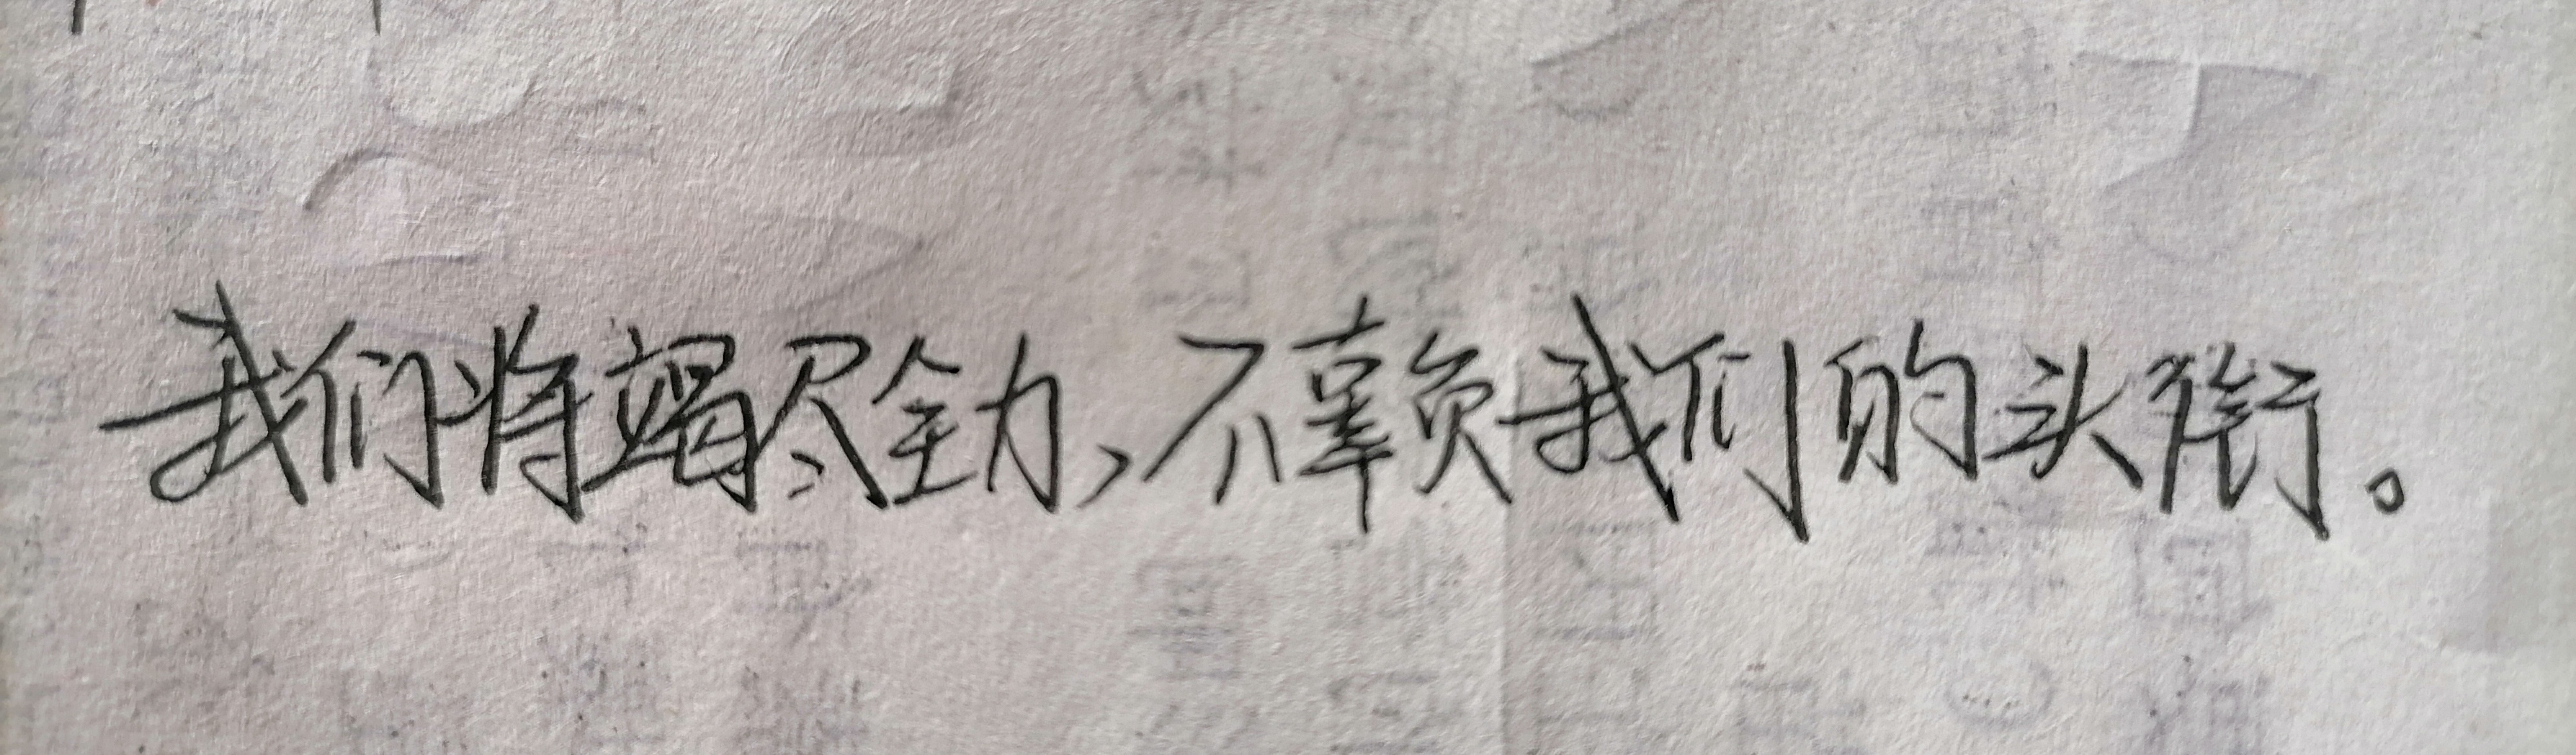 我们将竭尽全力,不辜负我们的头衔。